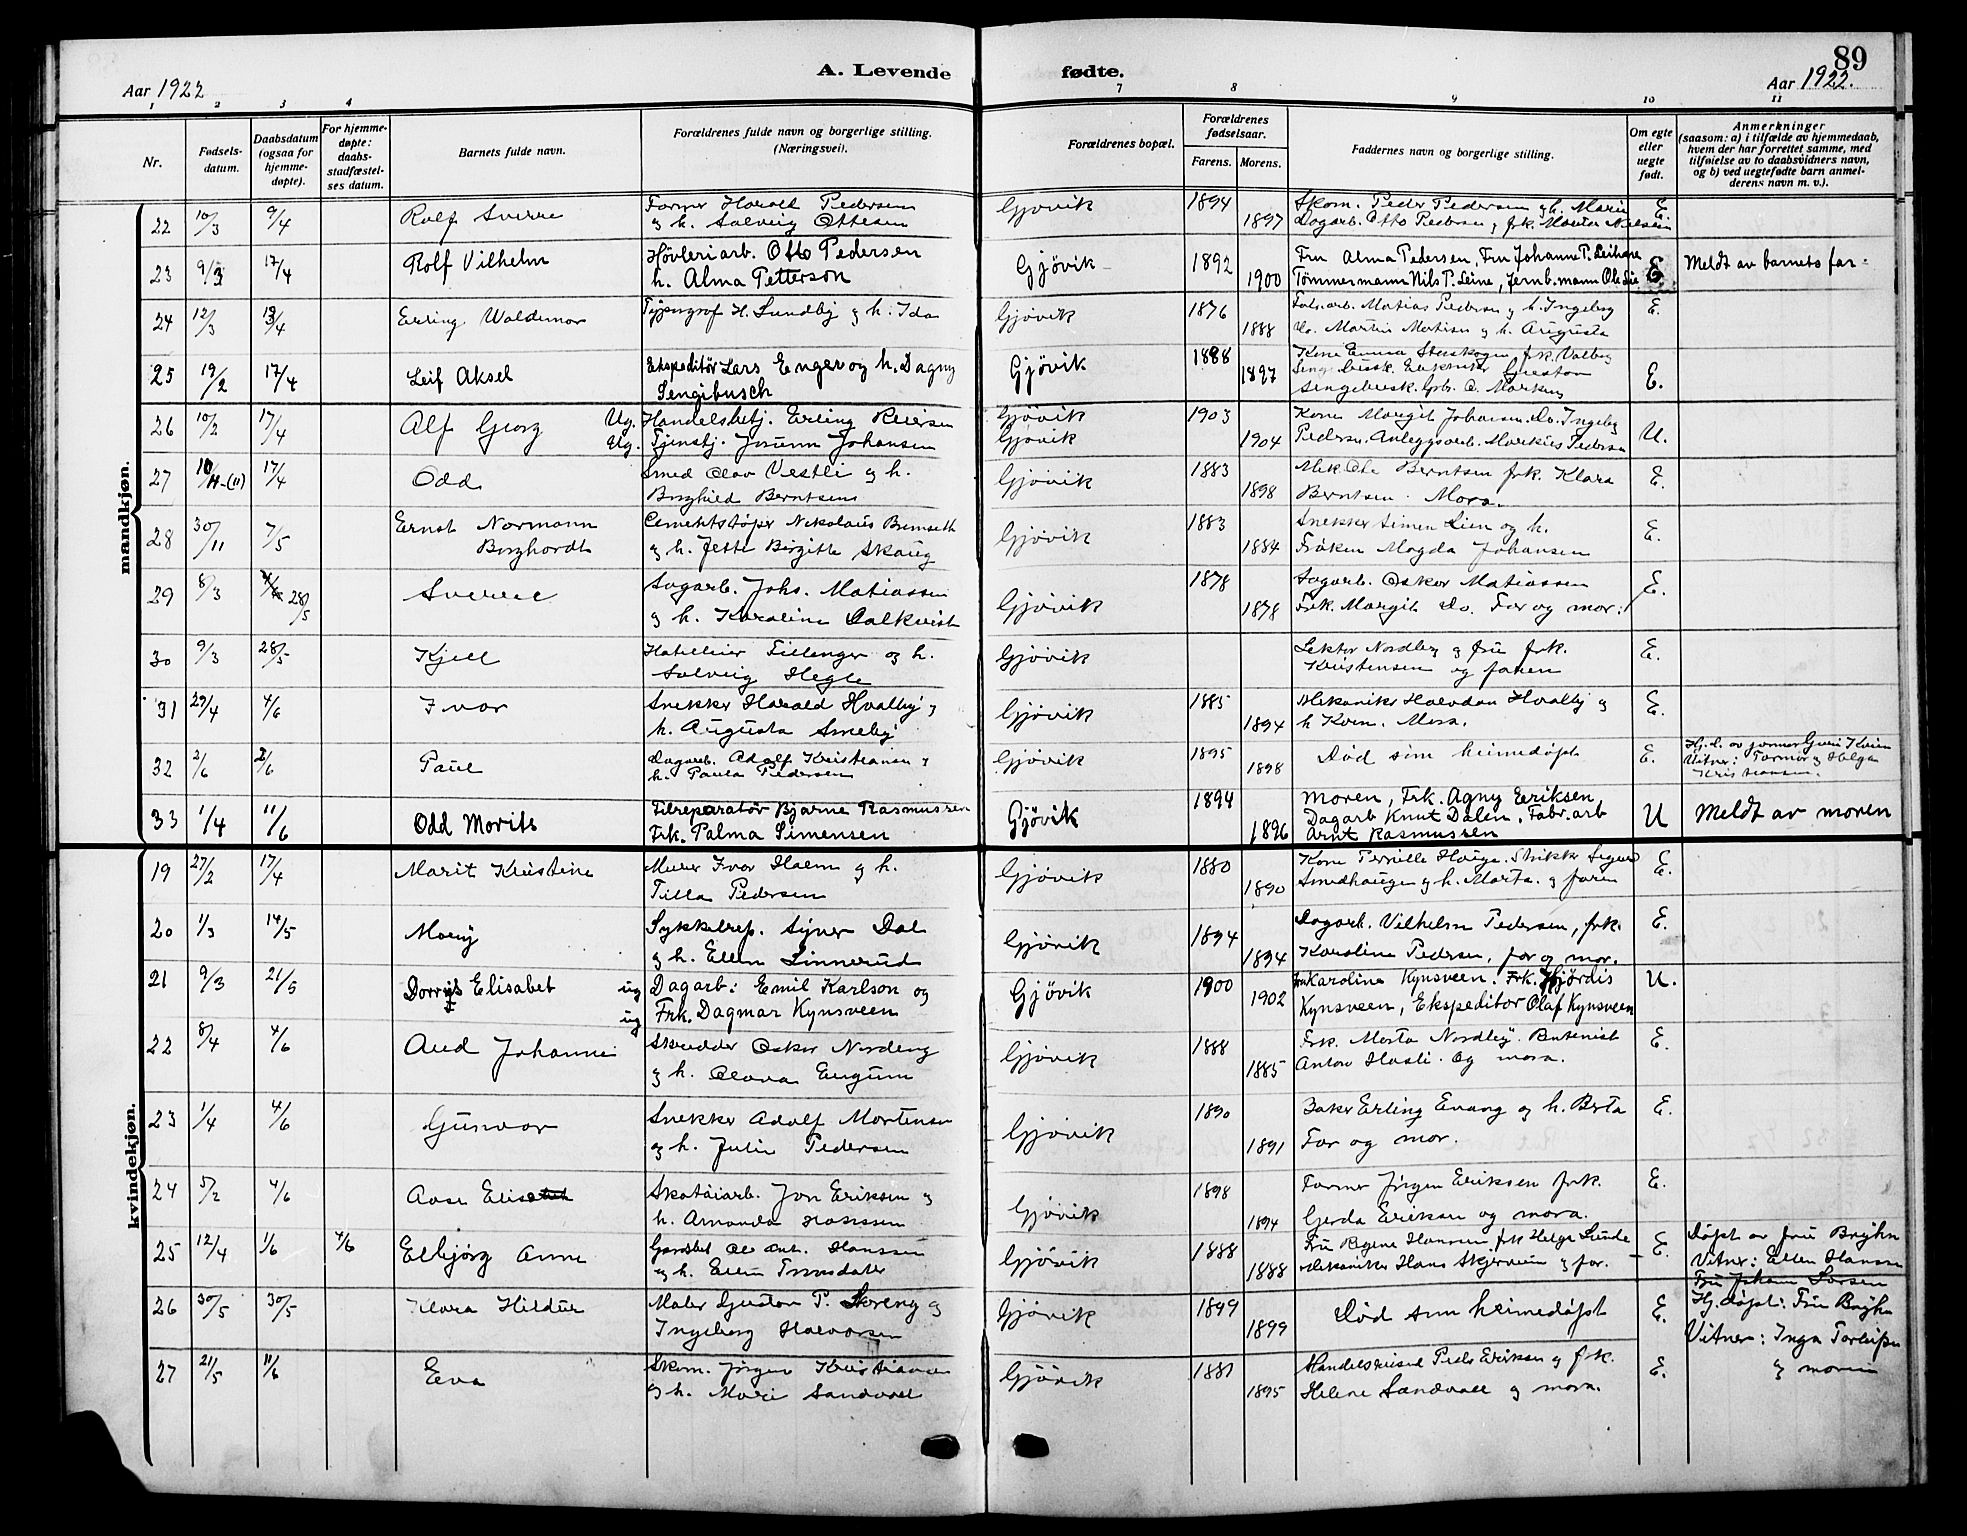 89
A. Levende fødte.
Aar 1922
Aar 1922.
1 2 3 4 7 8 9 10 11
Nr.
Fødsels-
datum.
Daabsdatum
(ogsaa for
hjemme-
døpte).
For hjemme-
døpte:
daabs-
stadfæstel-
ses datum.
Barnets fulde navn.
Forældrenes fulde navn og borgerlige stilling.
(Næringsvei).
Forældrenes bopæl.
Forældrenes
fødselsaar.
Farens. Morens.
Faddernes navn og borgerlige stilling.
Om egte
eller
uegte
født.
Anmerkninger
(saasom: a) i tilfælde av hjemmedaab,
hvem der har forrettet samme, med
tilføielse av to daabsvidners navn,
og b) ved uegtefødte barn anmel-
derens navn m. v.).
mandkjøn.
22 10/3 9/4 Rolf Sverre Former Harald Pedersen Gjøvik 1894 Skom. Peder Pedersen og h. Marie E.
og h. Solveig Ottesen 1897 Dagarb. Otto Pedersen og frk. Marta Nielsen
23 9/3 17/4 Rolf Vilhelm Høvleriarb. Otto Pedersen Gjövik 1892 Fru Alma Pedersen, Fru Johanne P. E. Meldt av barnets far.
h. Alma Petterson 1900 Tømmermann Nils P. Leine, Jernb.mann Ole Lie
24 12/3 Erling Waldemar Typograf H. Sundby og h. Ida Gjøvik 1876 Fabr.arb. Matias Pedersen og h. Ingeborg E.
1888 Do. Martin Matisen og h. Augusta
25 19/2 17/4 Leif Aksel Ekspeditör Lars Enger og h. Dagny Gjøvik 1888 Kone Emma
Sengibusch 1897 E.
26 10/2 17/4 Alf Georg Ug. Handelsbetj. Erling Reiersen Gjøvik 1903 Kone Margit Johansen. Do. Ingeborg
Ug. Tjenstj. Jorunn Johansen Gjøvik 1904 Pedersen. Anleggsarb. Markus Pedersen U.
27 17/4 Odd Smed Olav Vestli og h. Gjøvik 1883 Mek. Ole Berntsen frk. Klara E.
Borghild Berntsen 1898 Berntsen. Mora.
28 30/11 7/5 Ernst Normann Cementstøper Nikolaus Bremseth Gjøvik 1883 Snekker Simen Lien og h. E.
Borghardt og h. Jette Birgitte Skaug 1884 Frøken Magda Johansen
29 8/3 28/5 Sverre Sagarb. Johs. Matiassen Gjøvik 1878 Sagarb. Oskar Matiassen E.
og h. Karoline Dalkvist 1878 Frk. Margit Do. Far og mor.
30 9/3 28/5 Kjell Hotelleier Tillenger og h. Gjøvik Lektor Nordby og fru frk. E.
Solveig Hegle Kristensen og faren
31 29/4 4/6 Ivar Snekker Harald Hvalby og Gjøvik 1885 Mekaniker Halvdan Hvalby og E.
h. Augusta Smeby 1894 h Karen. Mora.
32 2/6 2/6 Paul Dagarb. Adolf Kristiansen og Gjøvik 1895 Død som heimedøpt E.
h. Paula Pedersen 1898 Vitner: Farmor og Helga
Kristiansen.
33 1/4 11/6 Odd Morits Bilreparatör Bjarne Rasmussen Gjøvik 1894 Moren, Frk. Agny Eriksen U Meldt av moren
Frk. Palma Simensen 1896 Dagarb Knut Dalen. Fabr.arb
Arnt Rasmussen
kvindekjøn.
19 27/2 17/4 Marit Kristine Murer Ivar Holm og h. Gjøvik 1880 Kone Pernille Hauge. Snikker Sigurd E.
Tilla Pedersen 1890 Smedhaugen og h. Marta. og faren
20 1/3 14/5 Mary Sykkelrep. Syver Dal Gjøvik 1894 Dagarb. Vilhelm Pedersen, frk. E.
og h. Ellen Linnerud 1894 Karoline Pedersen, far og mor.
21 9/3 21/5 Dorris Elisabet ug Dagarb: Emil Karlson og Gjövik 1900 Fru Karoline Kynsveen. Frk. Hjørdis U.
ug Frk. Dagmar Kynsveen 1902 Kynsveen, Ekspeditör Olaf Kynsveen
22 8/4 4/6 Aud Johanne Skrædder Oskar Nordeng Gjøvik 1888 Frk. Marta Nordby. E.
og h. Olava Engum 1885 Anton Hasli. Og mora.
23 1/4 4/6 Gunvor Snekker Adolf Mortensen Gjøvik 1890 Baker Erling Evang og h. Berta E.
og h. Julie Pedersen 1891 Far og mor.
24 5/2 4/6 Aase Elise Skotøiarb. Jon Eriksen og Gjøvik 1898 Former Jørgen Eriksen frk. E.
h. Amanda Hanssen 1894 Gerda Eriksen og mora.
25 12/4 1/6 4/6 Elbjørg Anne Gjøvik 1888 Fru Regine Hansen frk Helga Lunde E. Døpt av fru Bryhn
og h. Ellen Tømsdaler 1888 Mekaniker Hans Skjerveim og far. Vitner: Ellen Hanssen
Fru Johan Larsen
26 30/5 30/5 Klara Hildur Maler Gustav P. Moreng og Gjøvik 1899 Død som heimedøpt E. Hj.døpt: Fru Bryhn
Ingeborg Halvorsen 1899 Vitner: Inga
og moren
27 21/5 11/6 Eva Skom. Jørgen Kristiansen Gjøvik 1881 Handelsreisend Peder Eriksen og frk. E.
og h. Marie Sandvold 1895 Helene Sandvold og mora.